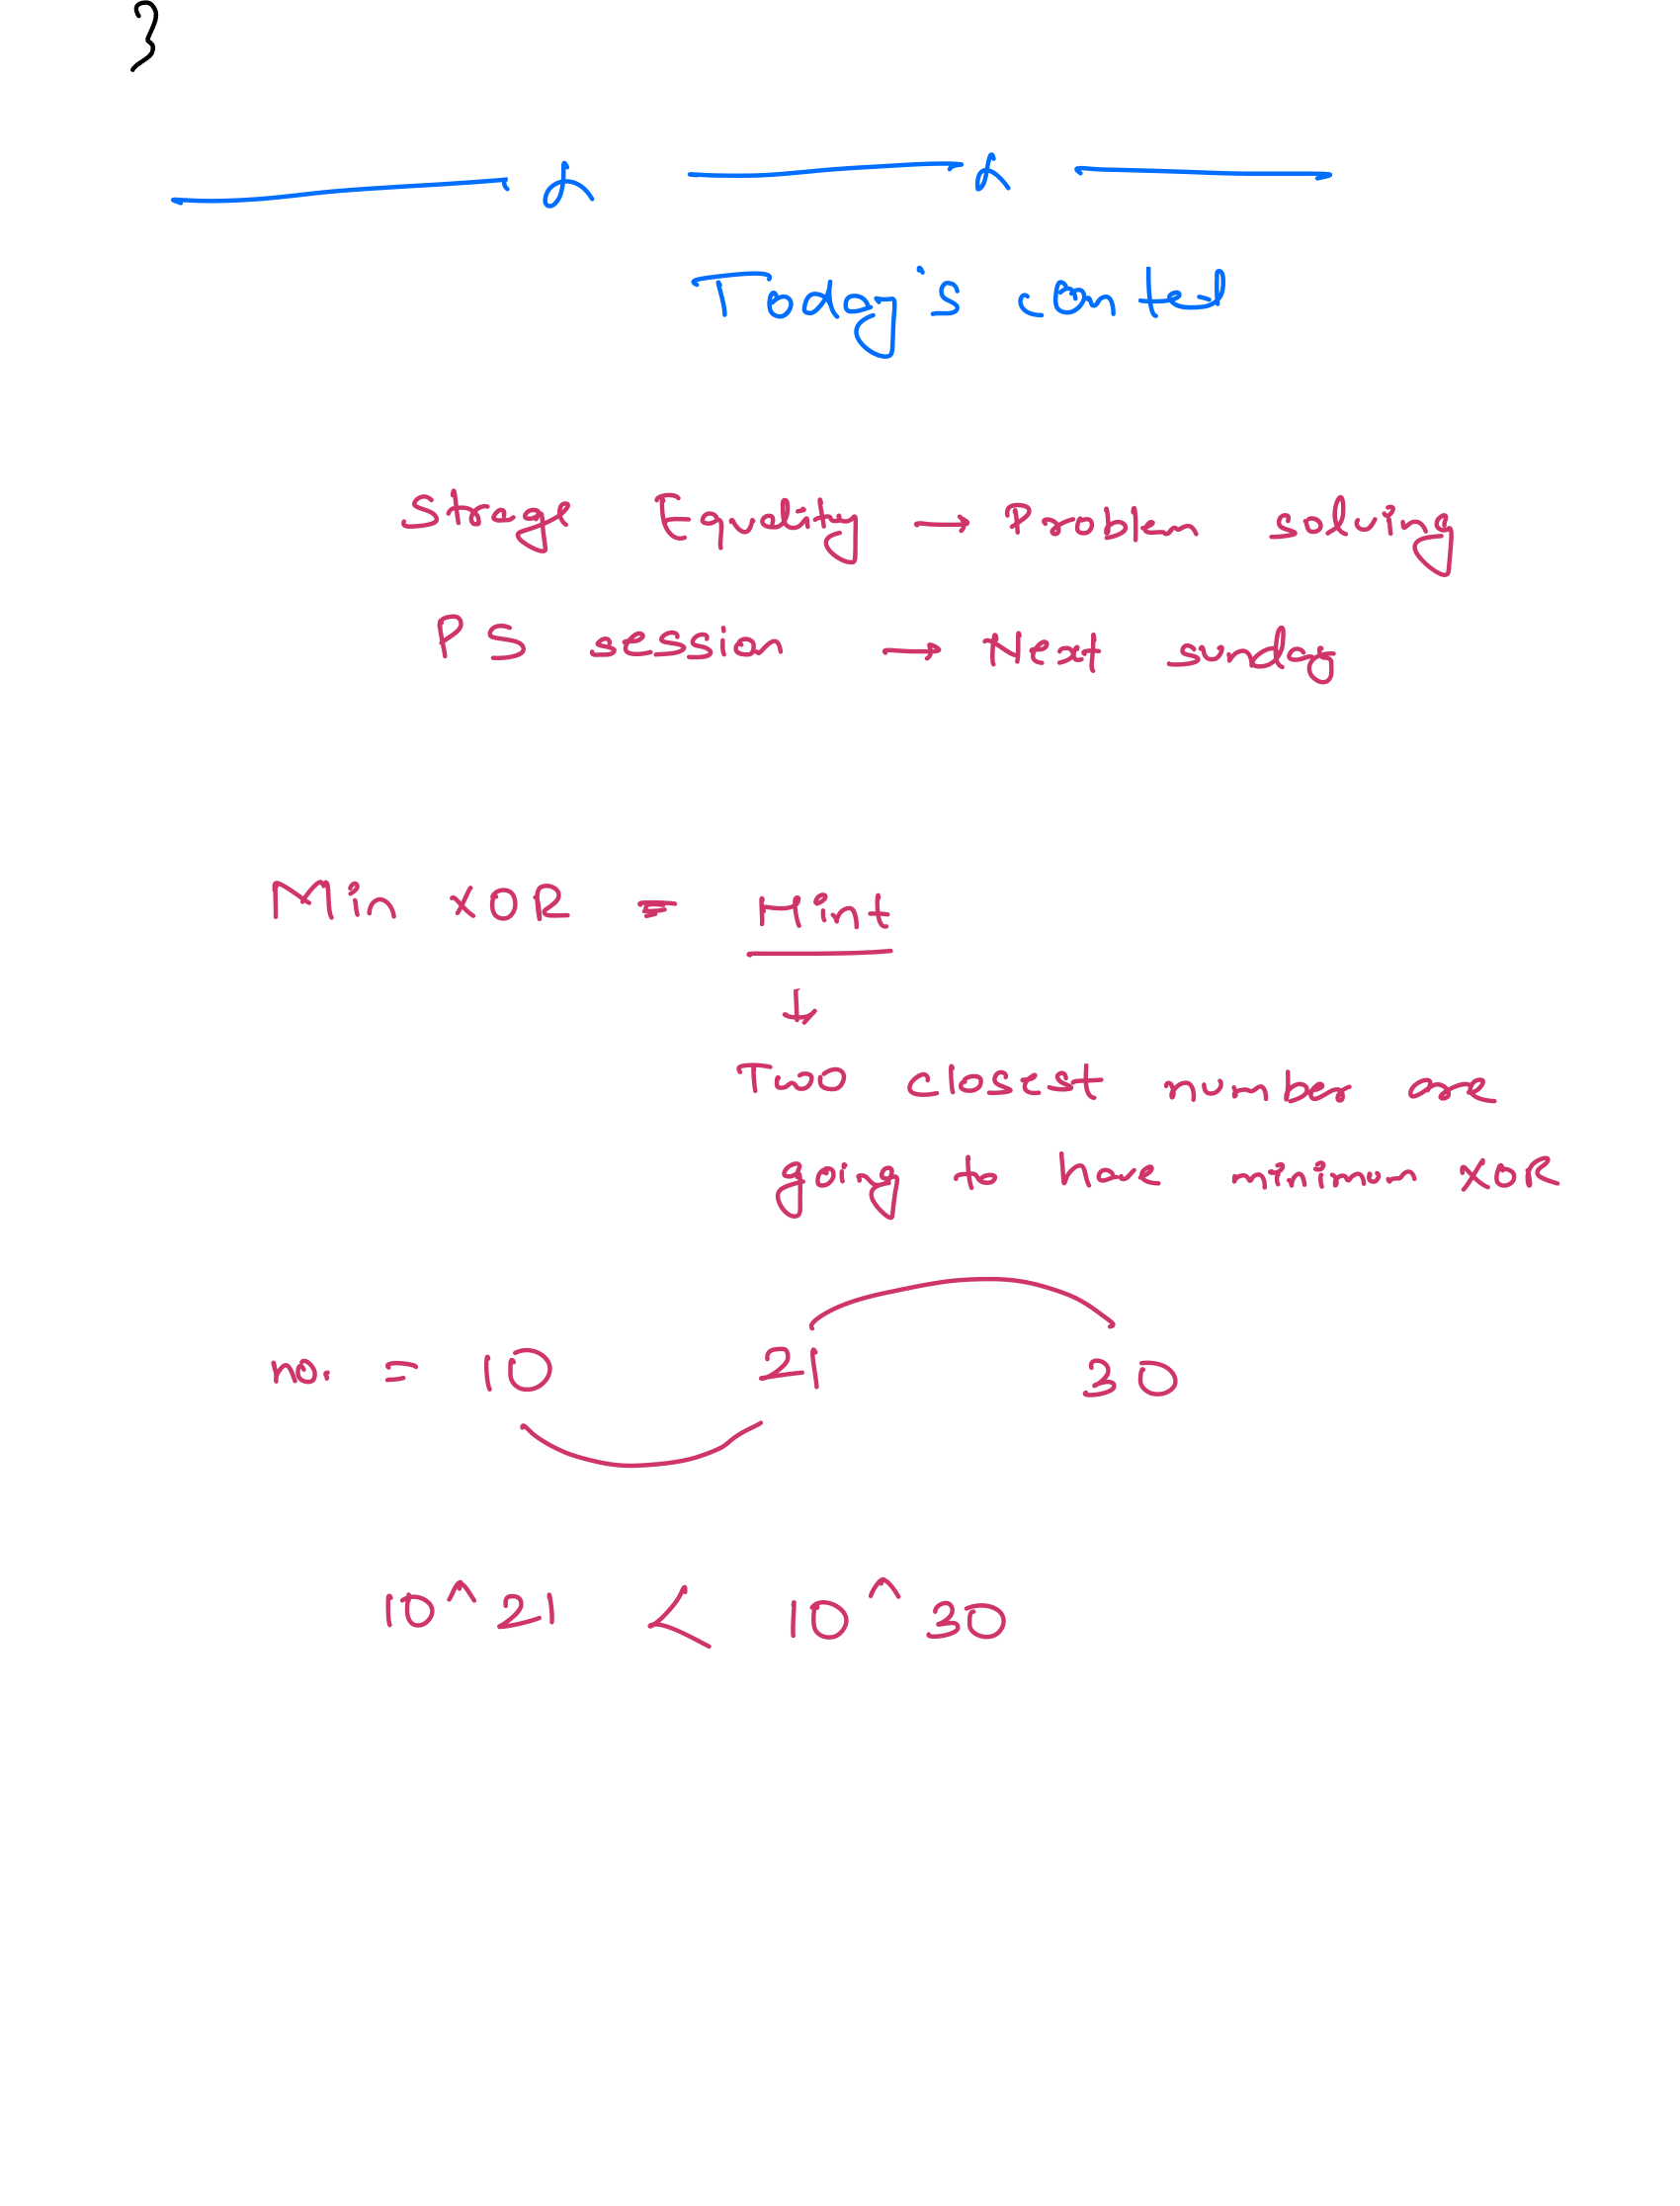 }
Today's contest
Strange Equality → Problem solving
PS session → Next sunday
Min XOR = Hint
↓
Two closest number are
going to have minimum XOR
no. = 10 21 30
10 ^ 21 < 10 ^ 30